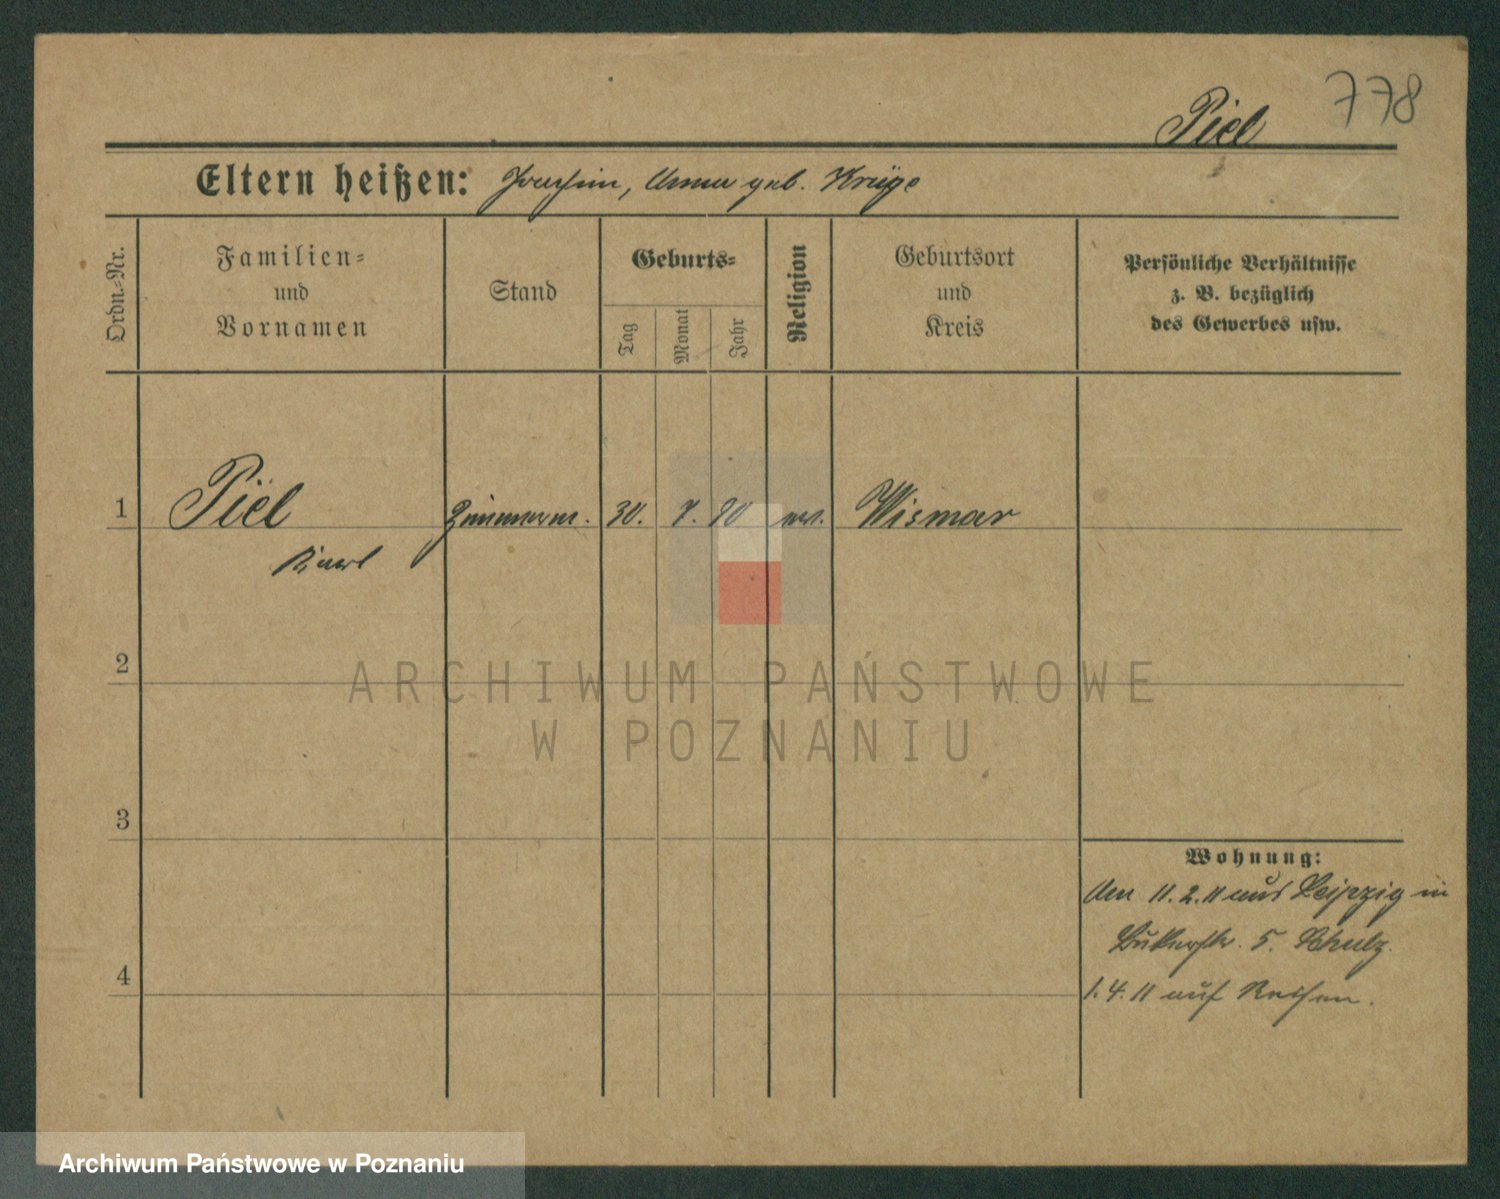 778
Piel
Eltern heißen: Joachim, Anna geb. Krüge
Ordn.-Nr.
Familien-
und
Vornamen
Stand
Geburts-
Tag
Monat
Jahr
Religion
Geburtsort
und
Kreis
Persönliche Verhältnisse
z. B. bezüglich
des Gewerbes usw.
1 Piel Zimmerm. 30. 7. 90 ev. Wismar
Karl
2
ARCHIWUM PAŃSTWOWE
W POZNANIU
3
Wohnung:
Am 11.2.11 aus Leipzig in
5. Schulz.
4
1.4.11 auf Reisen.
Archiwum Państwowe w Poznaniu